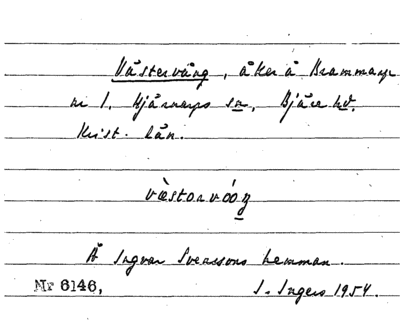 Västervång, åker å Brammarp
nr 1. Hjärnarps sn, Bjäre hd.
Krist. län.
væstərvóoŋ
Å Ingvar Svenssons hemman.
Nr 6146, I. Ingers 1954.